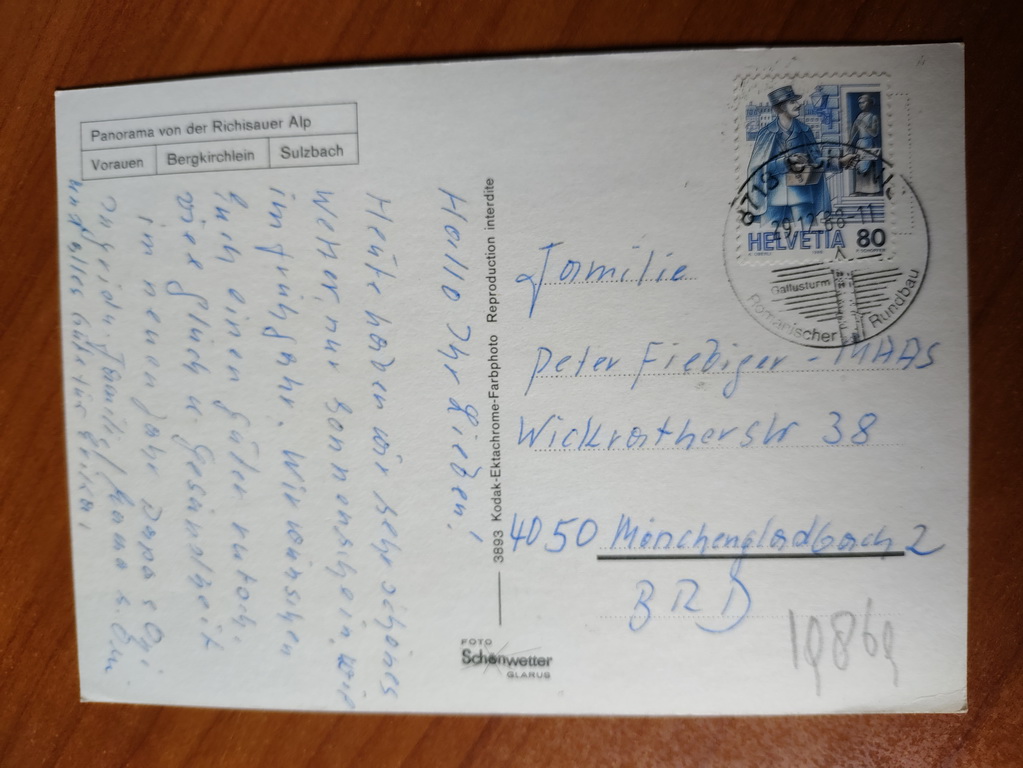 Panorama von der Richisauer Alp
Vorauen Bergkirchlein Sulzbach
Hallo Ihr Lieben!
Heute haben wir sehr schönes
Wetter, nur Sonnenschein, wie
im Frühjahr. Wir wünschen
Euch einen guten Rutsch,
viel Glück u. Gesundheit
im neuen Jahr Papa s Opi
Ingrid u. Familie/Mama s. Omi
und alles Gute für
3893 Kodak-Ektachrome-Farbphoto Reproduction interdite
FOTO
Schönwetter
GLARUS
HELVETIA 80
29.12.88-11
Gallusturm
Romanischer Rundbau
Familie
Peter Fiebiger - MAAS
Wickratherstr 38
4050 Mönchengladbach 2
BRD